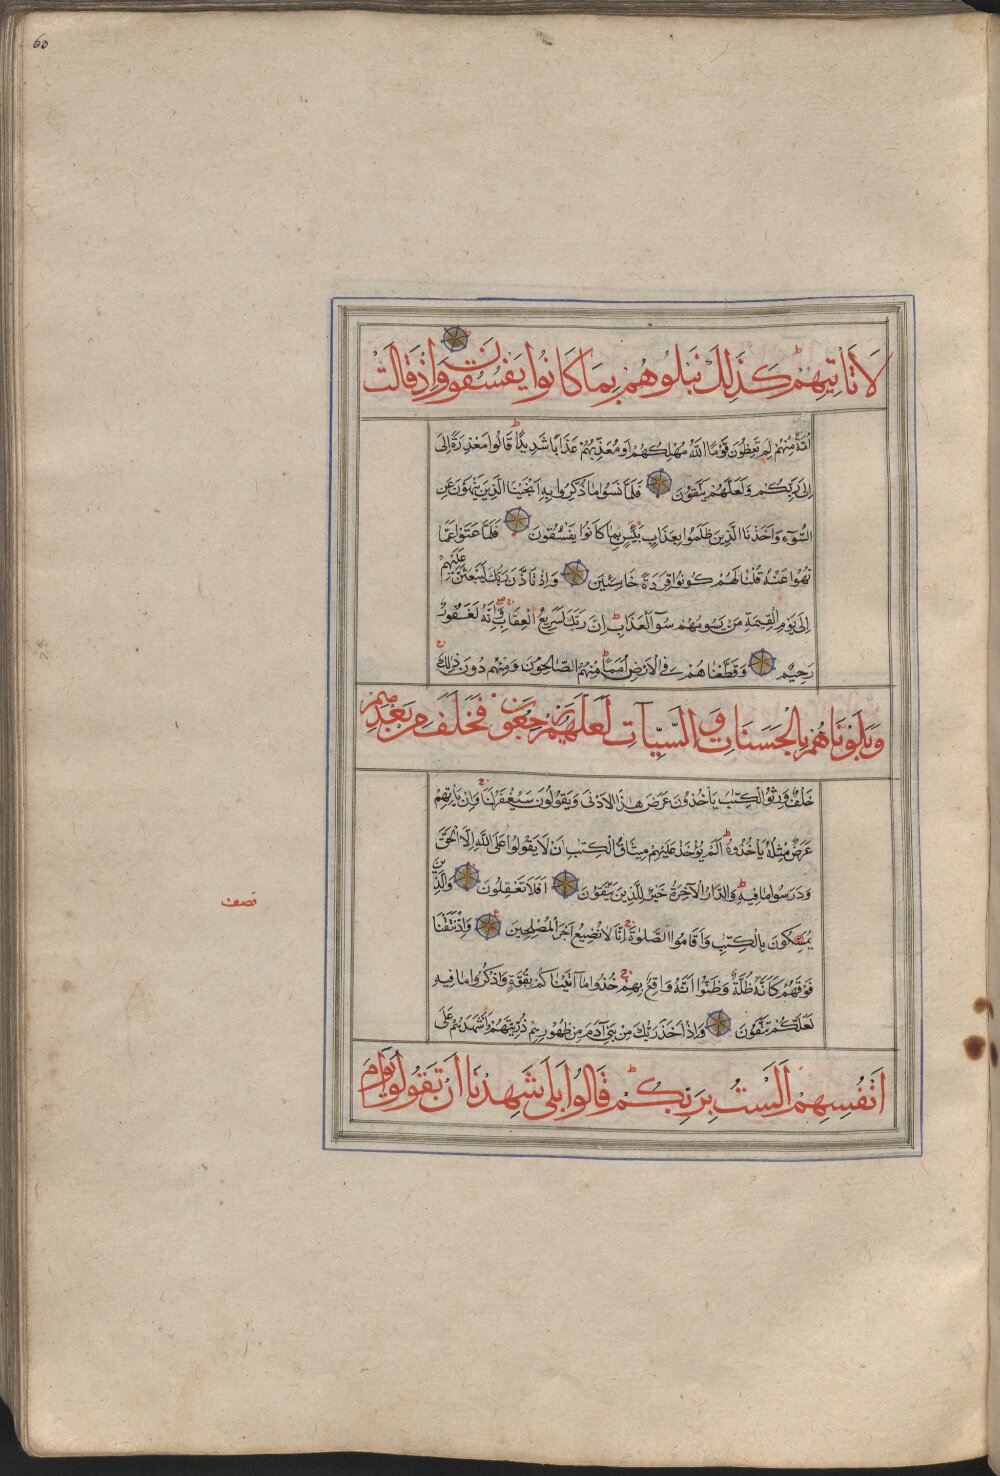 60
لَا تَأْتِيهِمْ كَذَلِكَ نَبْلُوهُمْ بِمَا كَانُوا يَفْسُقُونَ وَإِذْ قَالَتْ
اُمَّةٌ مِنْهُمْ لِمَ تَعِظُونَ قَوْمًا اللَّهُ مُهْلِكُهُمْ اَوْ مُعَذِّبُهُمْ عَذَابًا شَدِيدًا قَالُوا مَعْذِرَةً اِلَى
اِلَى رَبِّكُمْ وَلَعَلَّهُمْ يَتَّقُونَ فَلَمَّا نَسُوا مَا ذُكِّرُوا بِهِ اَنْجَيْنَا الَّذِينَ يَنْهَوْنَ عَنِ
السُّوۤءِ وَاَخَذْنَا الَّذِينَ ظَلَمُوا بِعَذَابٍ بَئِيسٍ بِمَا كَانُوا يَفْسُقُونَ فَلَمَّا عَتَوْا عَمَّا
نُهُوا عَنْهُ قُلْنَا لَهُمْ كُونُوا قِرَدَةً خَاسِئِينَ وَاِذْ تَاَذَّنَ رَبُّكَ لَيَبْعَثَنَّ عَلَيْهِمْ
اِلَى يَوْمِ الْقِيٰمَةِ مَنْ يَسُومُهُمْ سُوۤءَ الْعَذَابِ اِنَّ رَبَّكَ لَسَرِيعُ الْعِقَابِ وَاِنَّهُ لَغَفُورٌ
رَحِيمٌ وَقَطَّعْنَاهُمْ فِي الْاَرْضِ اُمَمًا مِنْهُمُ الصَّالِحُونَ وَمِنْهُمْ دُونَ ذٰلِكَ
وَبَلَوْنَاهُمْ بِالْحَسَنَاتِ وَالسَّيِّآتِ لَعَلَّهُمْ يَرْجِعُونَ فَخَلَفَ مِنْ بَعْدِهِمْ
خَلْفٌ وَرِثُوا الْكِتٰبَ يَأْخُذُونَ عَرَضَ هٰذَا الْاَدْنٰى وَيَقُولُونَ سَيُغْفَرُ لَنَا وَاِنْ يَأْتِهِمْ
عَرَضٌ مِثْلُهُ يَأْخُذُوهُ اَلَمْ يُؤْخَذْ عَلَيْهِمْ مِيثَاقُ الْكِتٰبِ اَنْ لَا يَقُولُوا عَلَى اللَّهِ اِلَّا الْحَقَّ
وَدَرَسُوا مَا فِيهِ وَالدَّارُ الْآخِرَةُ خَيْرٌ لِلَّذِينَ يَتَّقُونَ اَفَلَا تَعْقِلُونَ وَالَّذِينَ
يُمَسِّكُونَ بِالْكِتٰبِ وَاَقَامُوا الصَّلٰوةَ اِنَّا لَا نُضِيعُ اَجْرَ الْمُصْلِحِينَ وَاِذْ نَتَقْنَا
فَوْقَهُمْ كَاَنَّهُ ظُلَّةٌ وَظَنُّوا اَنَّهُ وَاقِعٌ بِهِمْ خُذُوا مَا آتَيْنَاكُمْ بِقُوَّةٍ وَاذْكُرُوا مَا فِيهِ
لَعَلَّكُمْ تَتَّقُونَ وَاِذْ اَخَذَ رَبُّكَ مِنْ بَنِي آدَمَ مِنْ ظُهُورِهِمْ ذُرِّيَّتَهُمْ وَاَشْهَدَهُمْ عَلَى
اَنْفُسِهِمْ اَلَسْتُ بِرَبِّكُمْ قَالُوا بَلَى شَهِدْنَا اَنْ تَقُولُوا يَوْمَ
نصف